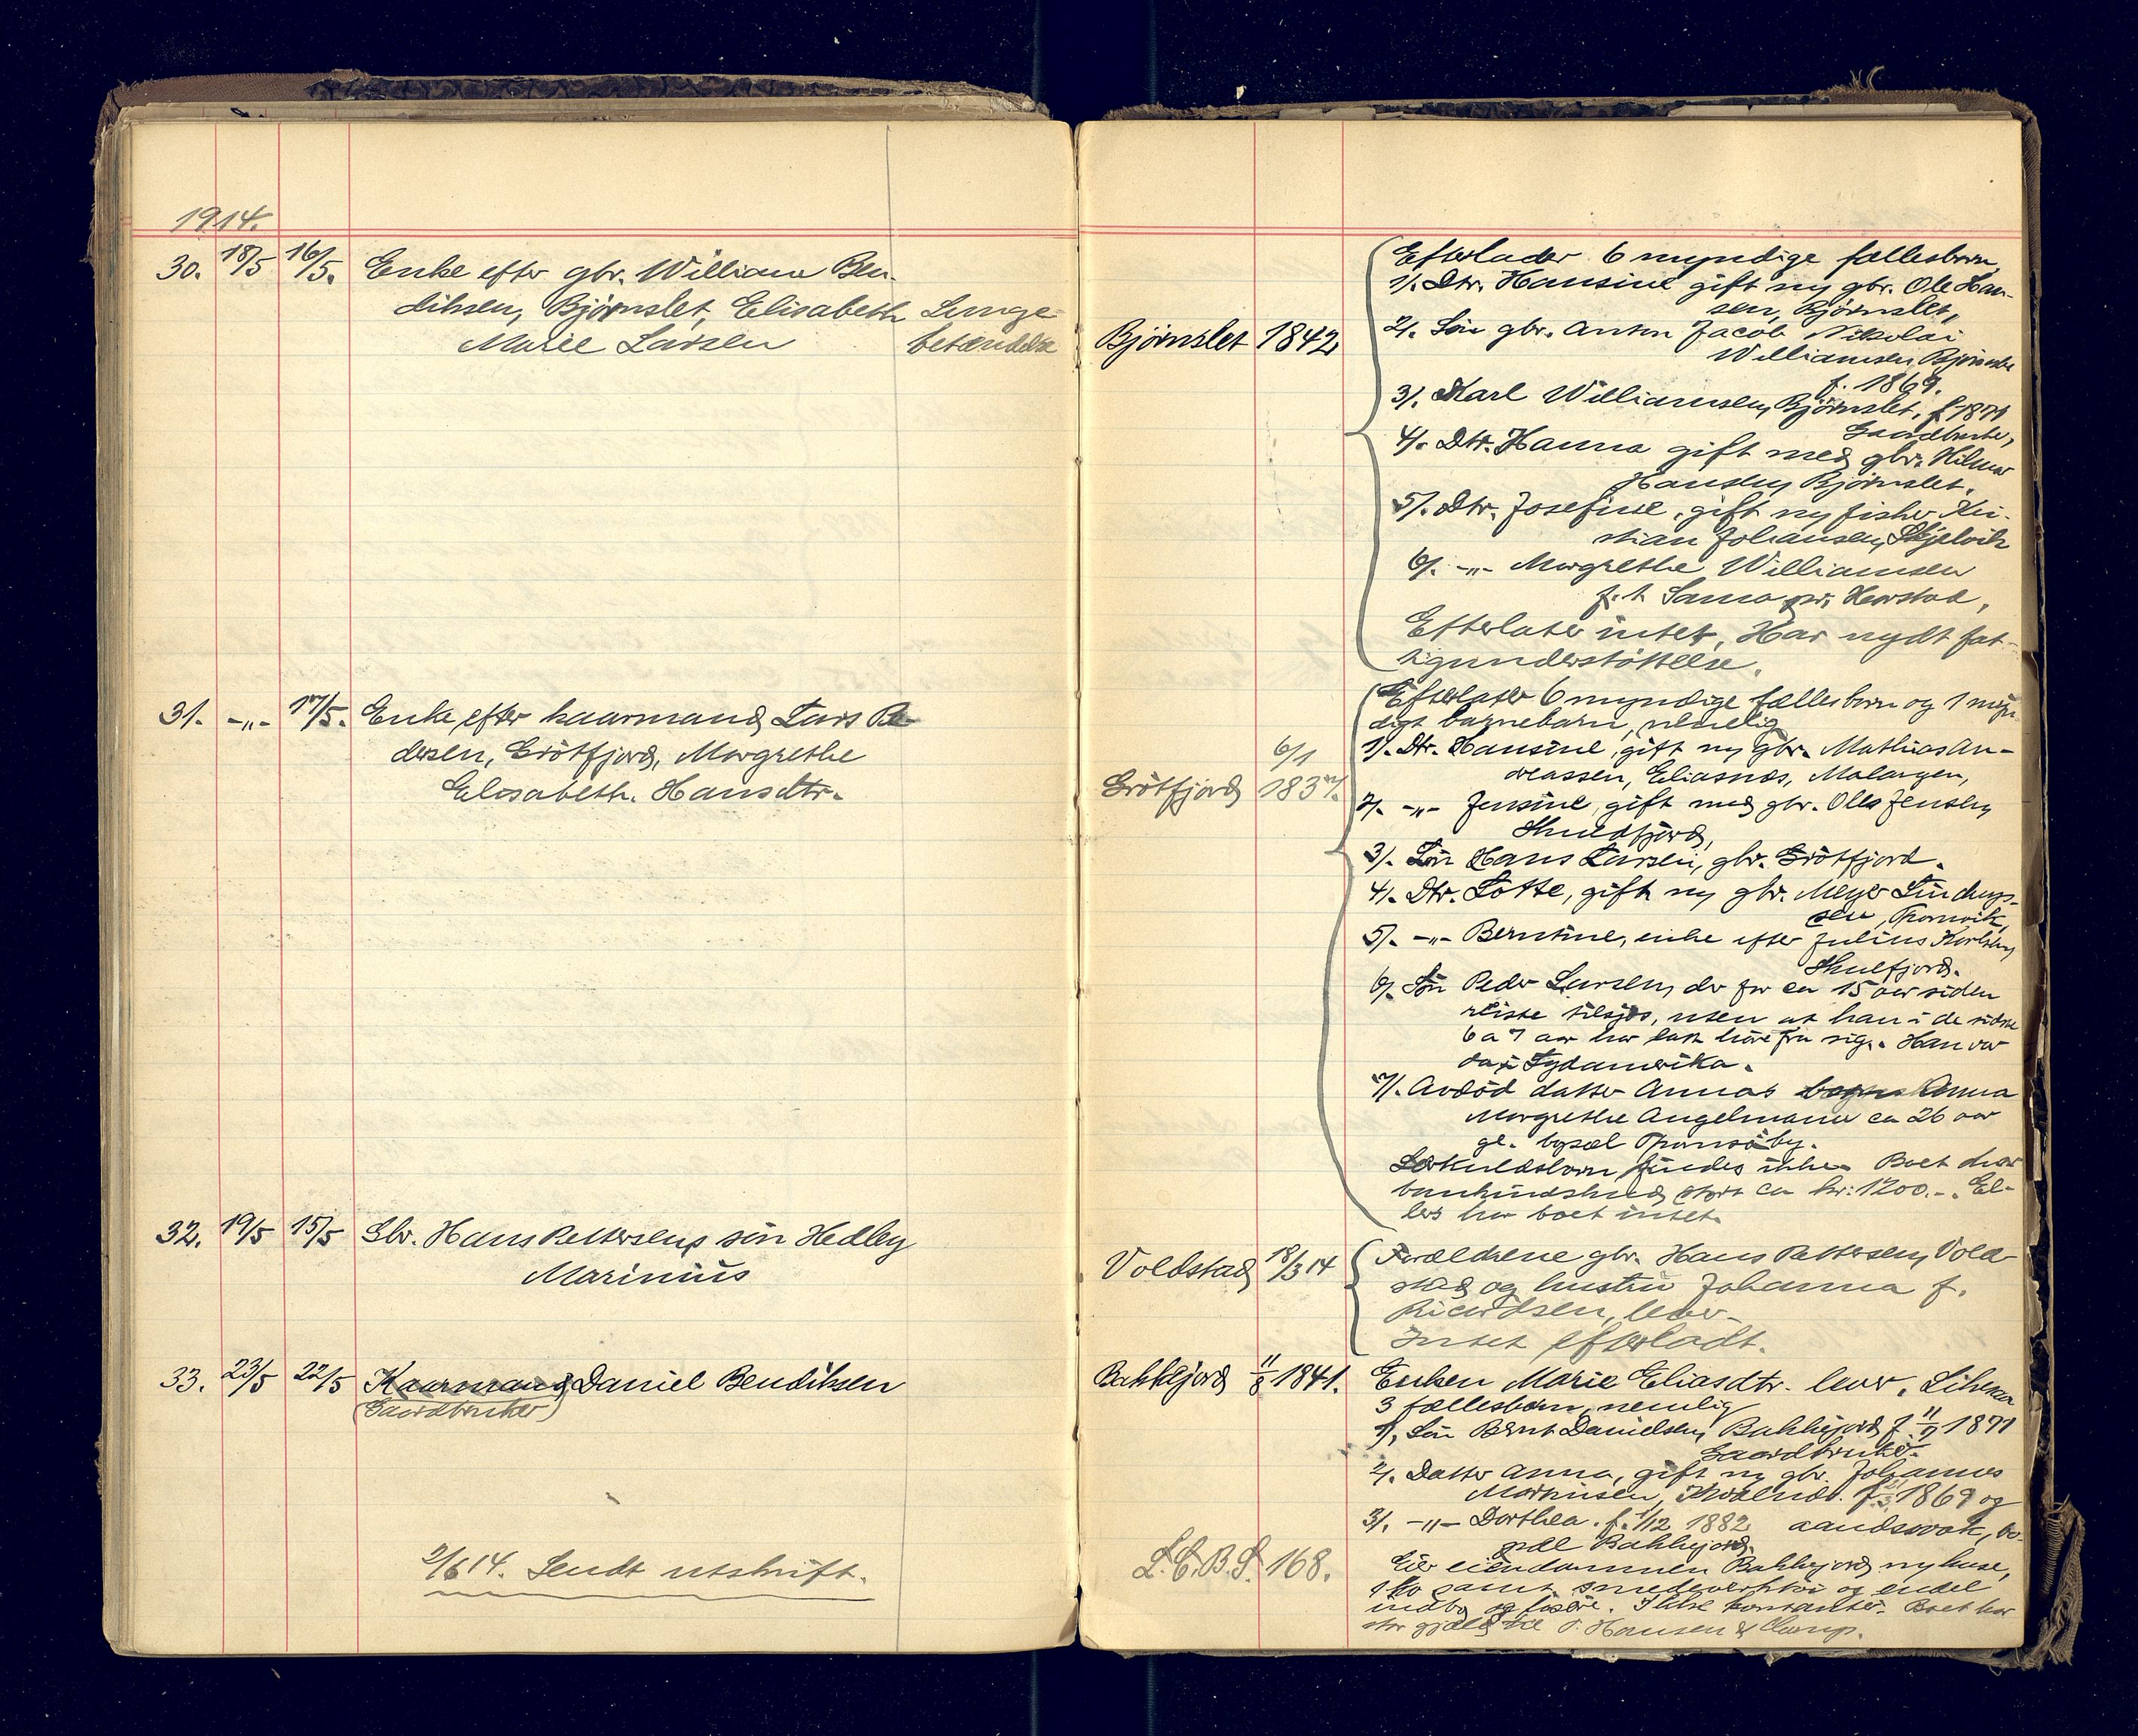 1914.
30. 18/5 16/5. Enke efter gbr. William Ben-
diksen, Bjørnslet, Elisabeth Lunge-
Marie Larsen betændelse
31. -„- 17/5. Enke efter kaarmand Lars Pe-
dersen, Grötfjord, Margrethe
Elisabeth Hansdtr.
32. 19/5 15/5 Gbr. Hans Pettersens sön Hedley
Marinius
33. 23/5 22/5 Kaarmand Daniel Bendiksen
(Gaardbruker)
2/6 14. Sendt utskrift.
Bjørnslet 1842
Efterlader 6 myndige fællesbørn
1/. Dtr. Hansine gift m/ gbr. Ole Han-
sen, Bjørnslet,
2/. Sön gbr. Anton Jacob Nikolai
Williamsen, Bjørnslet
f. 1869.
3/. Karl Williamsen, Bjørnslet, f. 1871
Gaardbruker,
4/. Dtr. Hanna gift med gbr. Hilmar
Hansen, Bjørnslet.
5/. Dtr. Josefine, gift m/ fisker Kri-
stian Johansen, Skjelvik
6/. -„- Margrethe Williamsen
f. t. Sama pr. Harstad,
Efterlater intet, Har nydt fat-
tigunderstöttelse.
Grötfjord 6/1 1837.
Efterlater 6 myndige fællesbörn og 1 myn-
digt barnebarn, nemlig
1/. Dtr. Hansine, gift m/ gbr. Mathias An-
dreassen, Eliasnes, Malangen,
2/. -„- Jensine, gift med gbr. Ole Jensen,
3/. Sön Hans Larsen, gbr. Grötfjord.
4/. Dtr. Lotte, gift m/ gbr. Meyer Lindrup-
sen, Tromvik,
5/. -„- Berntine, enke efter Julius Karlsen,
6/. Sön Peder Larsen, der for ca 15 aar siden
reiste tilsjös, uten at han i de sidste
6 a 7 aar har latt höre fra sig. Han var
da i Sydamerika.
7/. Avdöd datter Annas Anna
Margrethe Angelmann ca 26 aar
gl. bopæl Tromsöby.
Særkuldsbarn findes ikke. Boet har
bankindskud stort ca kr: 1200.-. El-
lers har boet intet.
Voldstad 18/3 14
Forældrene gbr. Hans Pettersen, Vold-
stad og hustru Johanna f.
Ricardsen, lever.
Intet efterladt.
Bakkejord 11/8 1841.
Enken Marie Eliasdtr. lever. Likesaa
3 fællesbarn, nemlig
1/. Sön Bernt Danielsen, Bakkejord f. 11/9 1871
Gaardbruker.
2/. Datter Anna, gift m/ gbr. Johannes
Markussen, f. 1869 og
3/. -„- Dorthea. f. 1/12 1882 aandssvak, bo-
pæl Bakkejord.
Eier eiendommen Bakkejord m/ huse,
1 ko samt smedeverktöi og endel
indbo og lösöre. Ikke kontanter. Boet har
stor gjæld til J. Hansen &
L.E.B.S. 168.